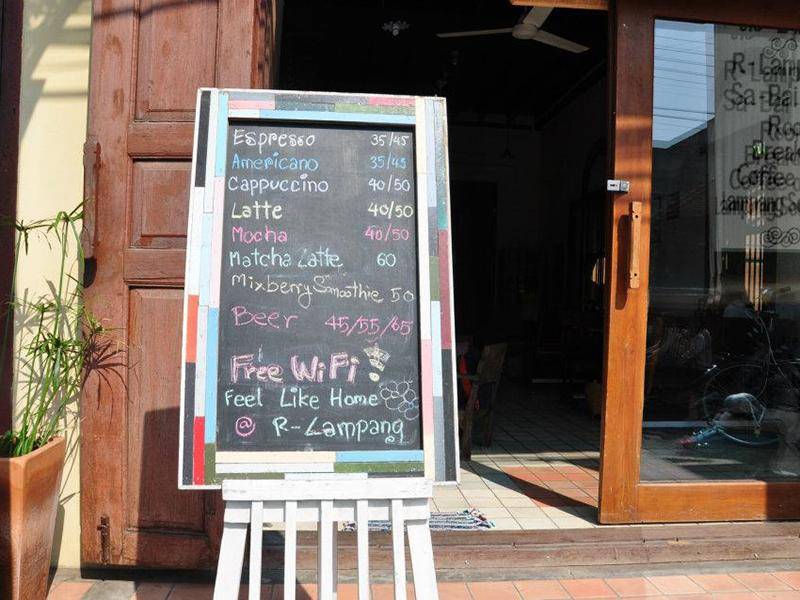 Espresso 35/45
Americano 35/45
Cappuccino 40/50
Latte 40/50
Mocha 40/50
Matcha Latte 60
Mixberry Smoothie 50
Beer 45/55/65
Free WiFi!
Feel Like Home
@ R-Lampang
R-Lam
Sa-Bai
Coffee
Lampang